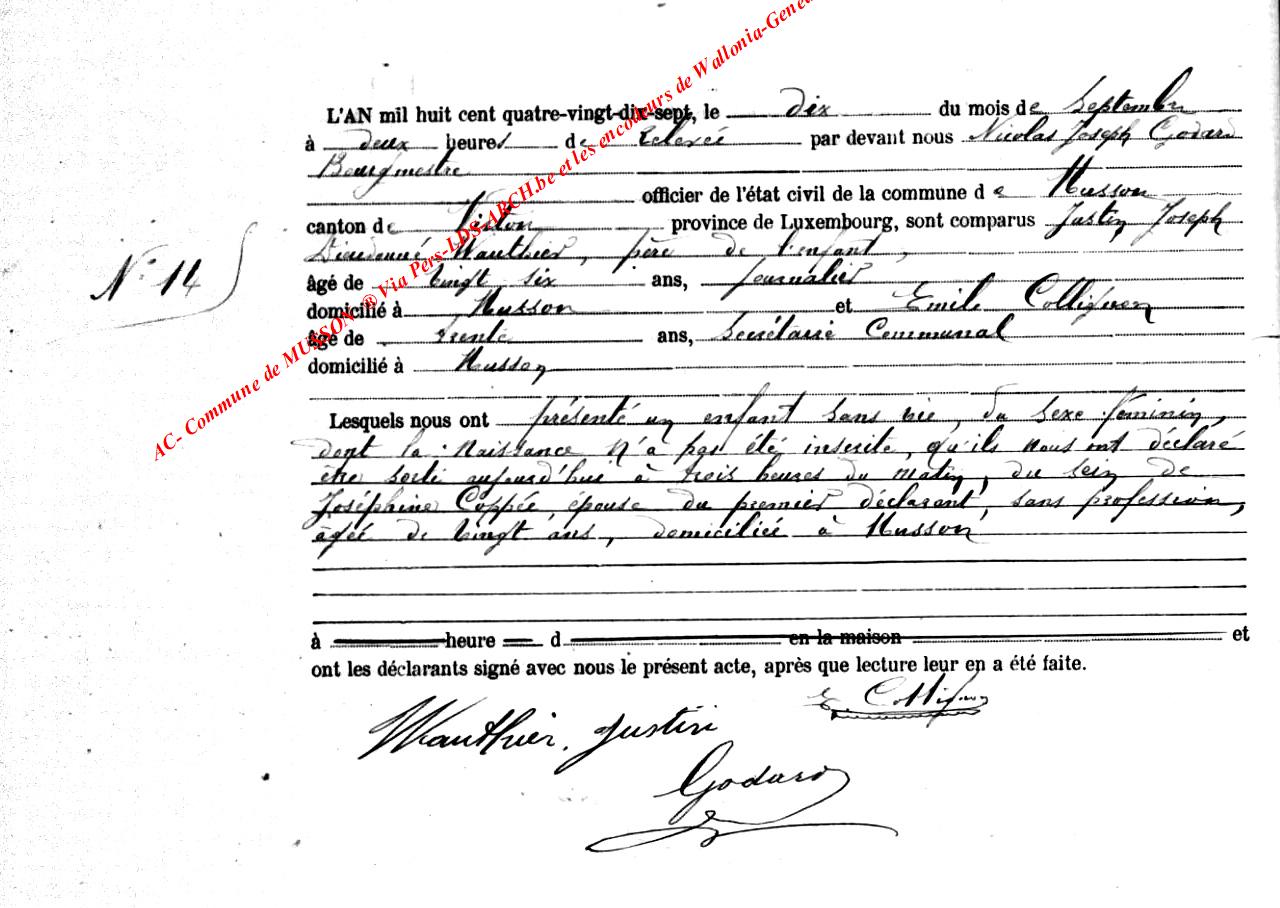 L'AN mil huit cent quatre-vingt-dix-sept, le dix du mois de Septembre
à deux heures de Relevée par devant nous Nicolas Joseph Godard
Bourgmestre
officier de l'état civil de la commune de Musson
canton de Virton province de Luxembourg, sont comparus Justin Joseph
Dieudonné Wauthier, père de l'enfant,
N° 14
âgé de vingt six ans, journalier
domicilié à Musson et Emile Collignon
âgé de trente ans, Secrétaire Communal
domicilié à Musson
Lesquels nous ont présenté un enfant sans vie, du sexe féminin,
dont la Naissance n'a pas été inscrite, qu'ils nous ont déclaré
être sorti aujourd'hui à trois heures du matin, du sein de
Joséphine Coppée, épouse du premier déclarant, sans profession,
âgée de vingt ans, domiciliée à Musson
à heure d en la maison et
ont les déclarants signé avec nous le présent acte, après que lecture leur en a été faite.
E Collignon
Wauthier, Justin
Godard
AC- Commune de MUSSON ® Via Pers-LDS-ARCH.be et les encodeurs de Wallonia-Genea